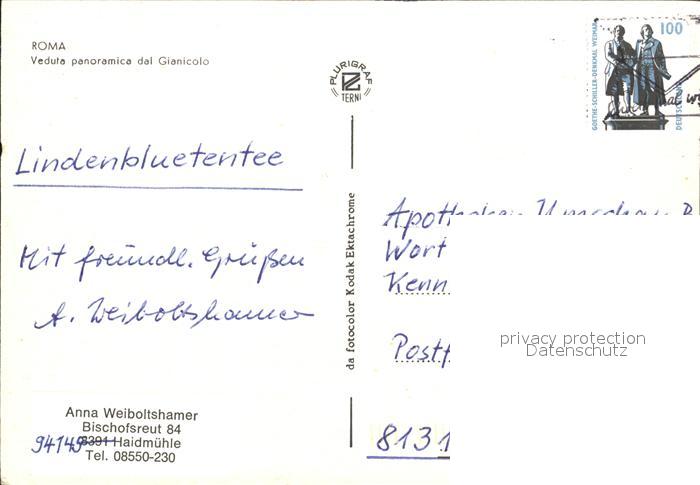 ROMA
Veduta panoramica dal Gianicolo
PLURIGRAF
TERNI
100
GOETHE-SCHILLER-DENKMAL WEIMAR
DEUTSCHE
Lindenbluetentee
Mit freundl. Grüßen
A. Weiboltshamer
da fotocolor Kodak Ektachrome
Apotheken Umschau
Wort
Kenn
Postf
privacy protection
Datenschutz
Anna Weiboltshamer
Bischofsreut 84
94145 8391 Haidmühle
Tel. 08550-230
8131